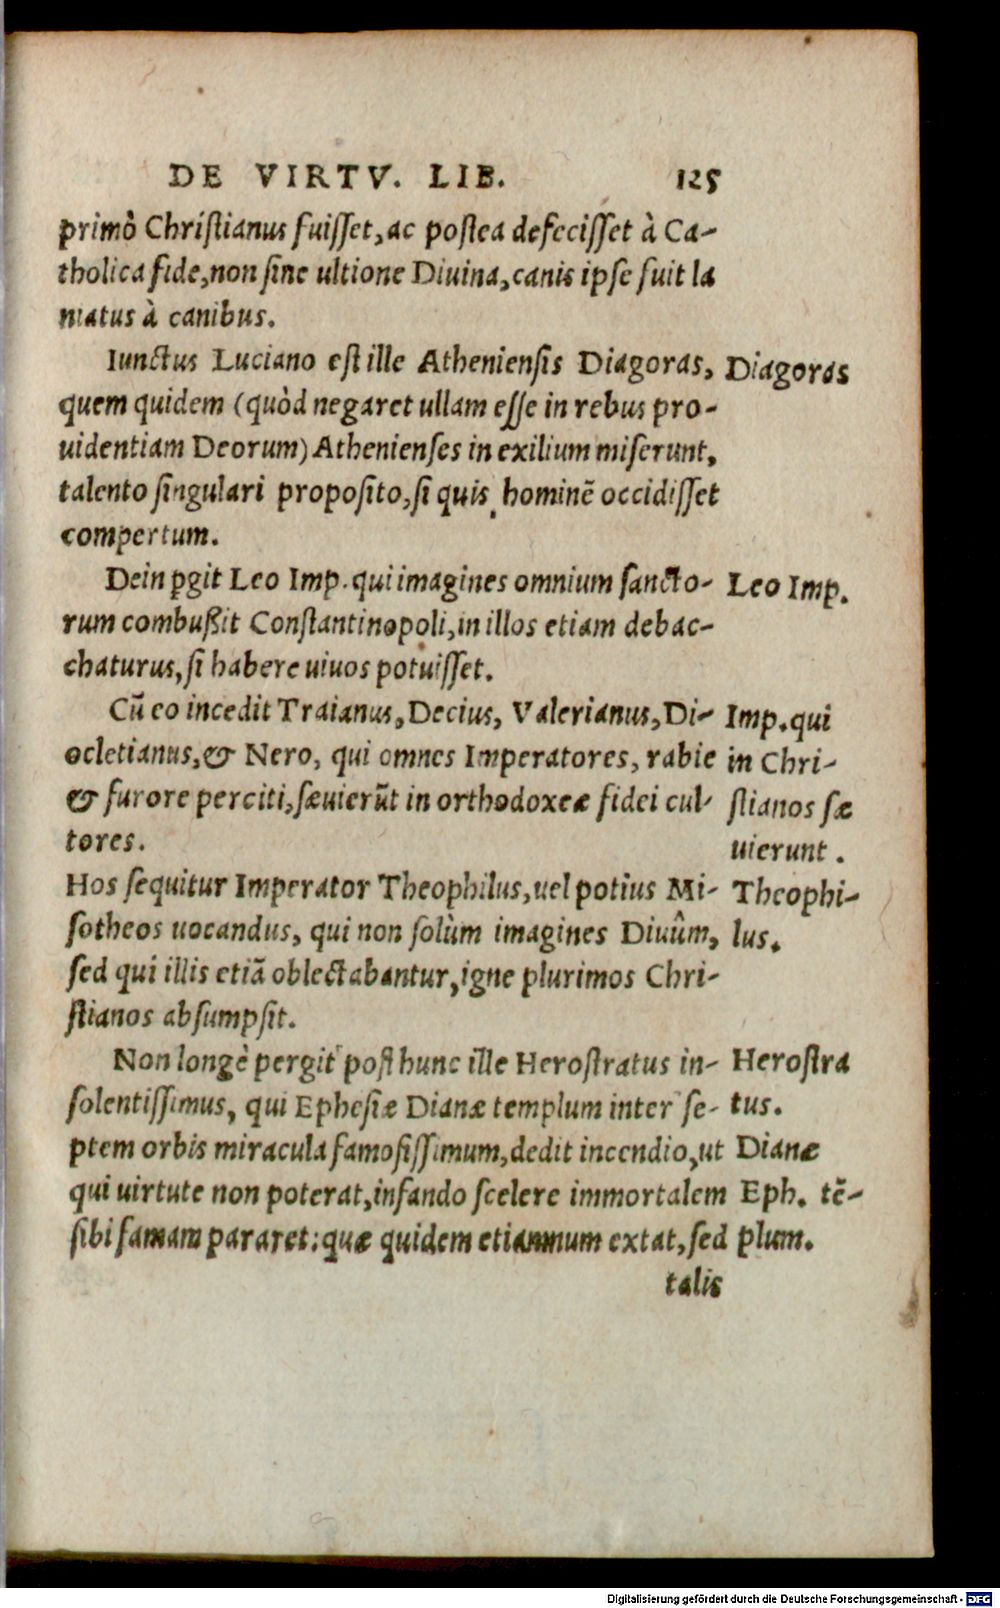 DE VIRTV. LIB. 125
primò Christianus fuisset, ac postea defecisset à Ca-
tholica fide, non sine ultione Diuina, canis ipse fuit la
niatus à canibus.
Iunctus Luciano est ille Atheniensis Diagoras,
Diagoras
quem quidem (quòd negaret ullam esse in rebus pro-
uidentiam Deorum) Athenienses in exilium miserunt,
talento singulari proposito, si quis hominē occidisset
compertum.
Dein ꝑgit Leo Imp. qui imagines omnium sancto-
Leo Imp.
rum combußit Constantinopoli, in illos etiam debac-
chaturus, si habere uiuos potuisset.
Cū eo incedit Traianus, Decius, Valerianus, Di-
ocletianus, & Nero, qui omnes Imperatores, rabie
& furore perciti, sæuierūt in orthodoxeæ fidei cul-
tores.
Imp. qui
in Chri-
stianos sæ
uierunt.
Hos sequitur Imperator Theophilus, uel potius Mi-
sotheos uocandus, qui non solùm imagines Diuûm,
Theophi-
lus.
sed qui illis etiā oblectabantur, igne plurimos Chri-
stianos absumpsit.
Non longè pergit post hunc ille Herostratus in-
solentissimus, qui Ephesiæ Dianæ templum inter se-
Herostra
tus.
ptem orbis miracula famosissimum, dedit incendio, ut
qui uirtute non poterat, infando scelere immortalem
sibi famam pararet: quæ quidem etiamnum extat, sed
Dianæ
Eph. tē-
plum.
talis
Digitalisierung gefördert durch die Deutsche Forschungsgemeinschaft - DFG